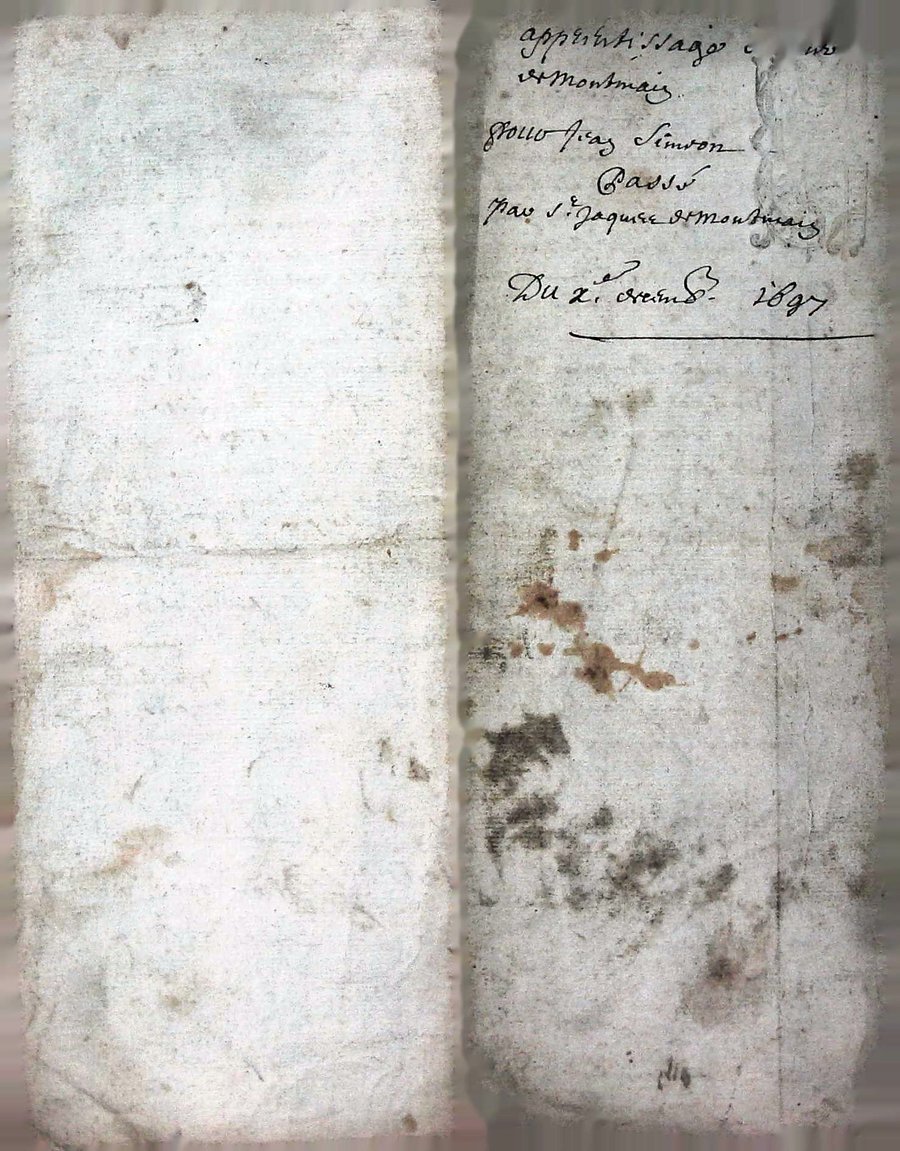 apprentissage
de Montmain
pour Jean Simeon
Passé
par Sr. Jaques de Montmain
Du 2e. decemb. 1697